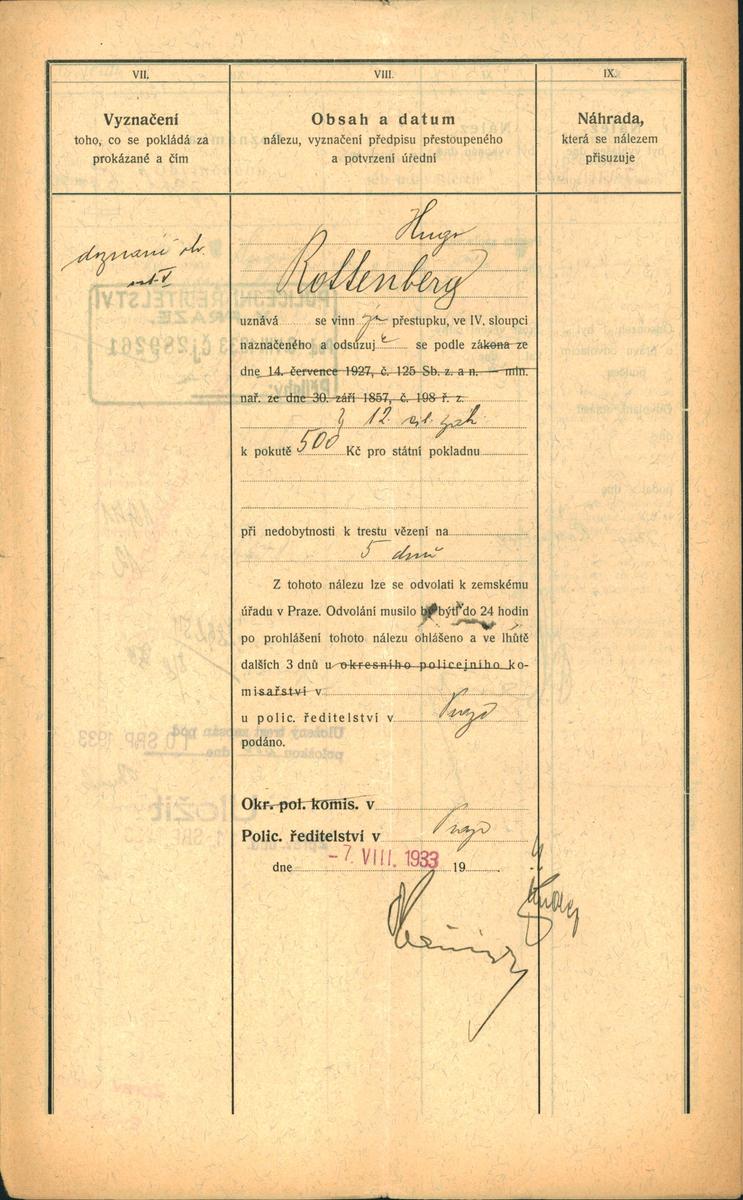 VII.
VIII.
IX.
Vyznačení
toho, co se pokládá za
prokázané a čím
Obsah a datum
nálezu, vyznačení předpisu přestoupeného
a potvrzení úřední
Náhrada,
která se nálezem
přisuzuje
doznání ob.
Hugo
Rottenberg
uznává se vinn ým přestupku, ve IV. sloupci
naznačeného a odsuzuj e se podle zákona ze
dne 14. července 1927, č. 125 Sb. z. a n. — min.
nař. ze dne 30. září 1857, č. 198 ř. z.
§ 12
k pokutě 500 Kč pro státní pokladnu
při nedobytnosti k trestu vězení na
5 dnů
Z tohoto nálezu lze se odvolati k zemskému
úřadu v Praze. Odvolání musilo by býti do 24 hodin
po prohlášení tohoto nálezu ohlášeno a ve lhůtě
dalších 3 dnů u okresního policejního ko-
misařství v
u polic. ředitelství v Praze
podáno.
Okr. pol. komis. v
Polic. ředitelství v Praze
dne -7. VIII. 1933 19